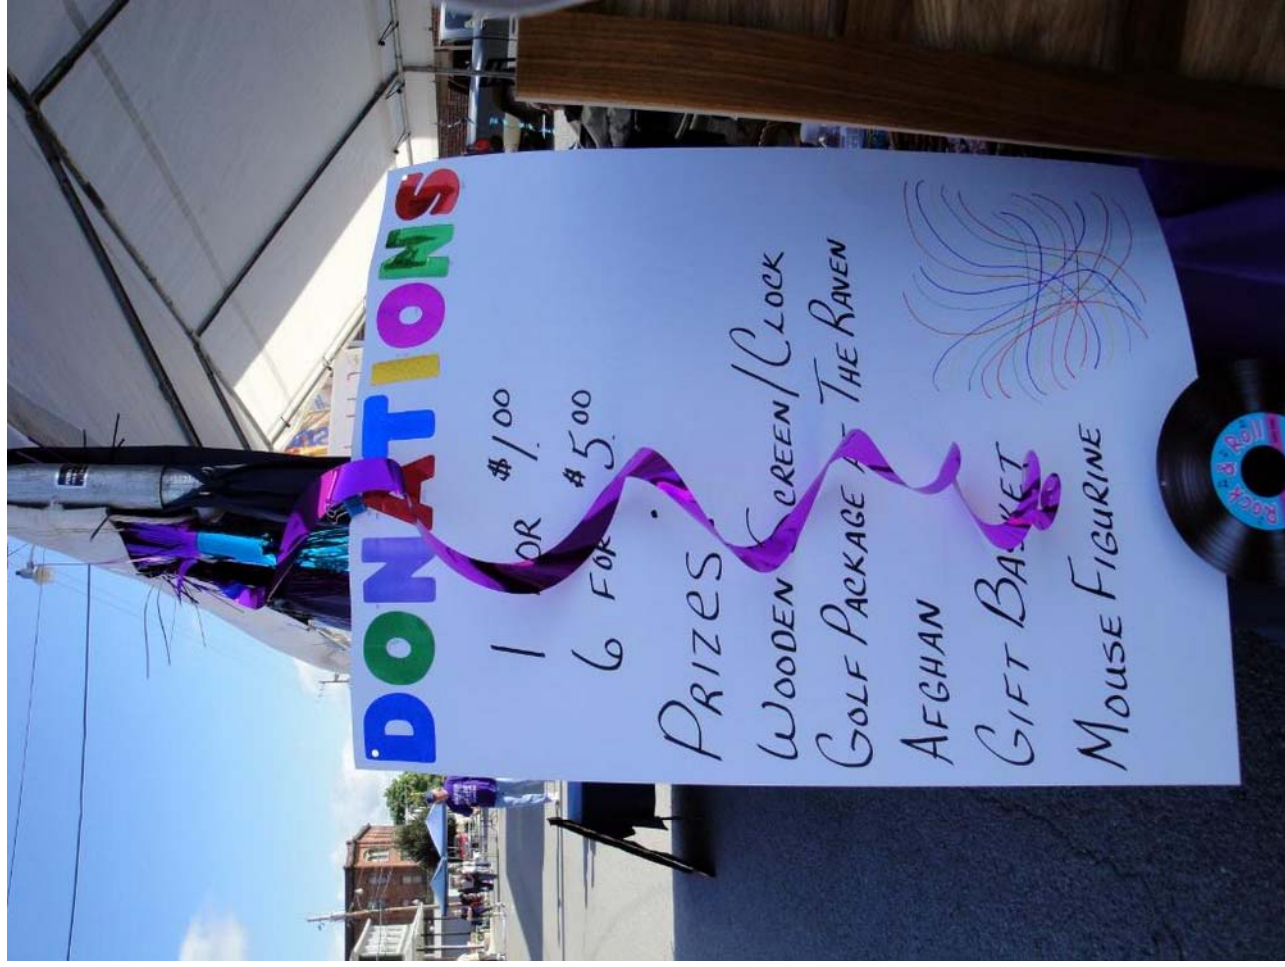 DONATIONS
1 FOR $1.00
6 FOR $5.00
PRIZES
WOODEN SCREEN/CLOCK
GOLF PACKAGE AT THE RAVEN
AFGHAN
GIFT BASKET
MOUSE FIGURINE
ROCK & ROLL